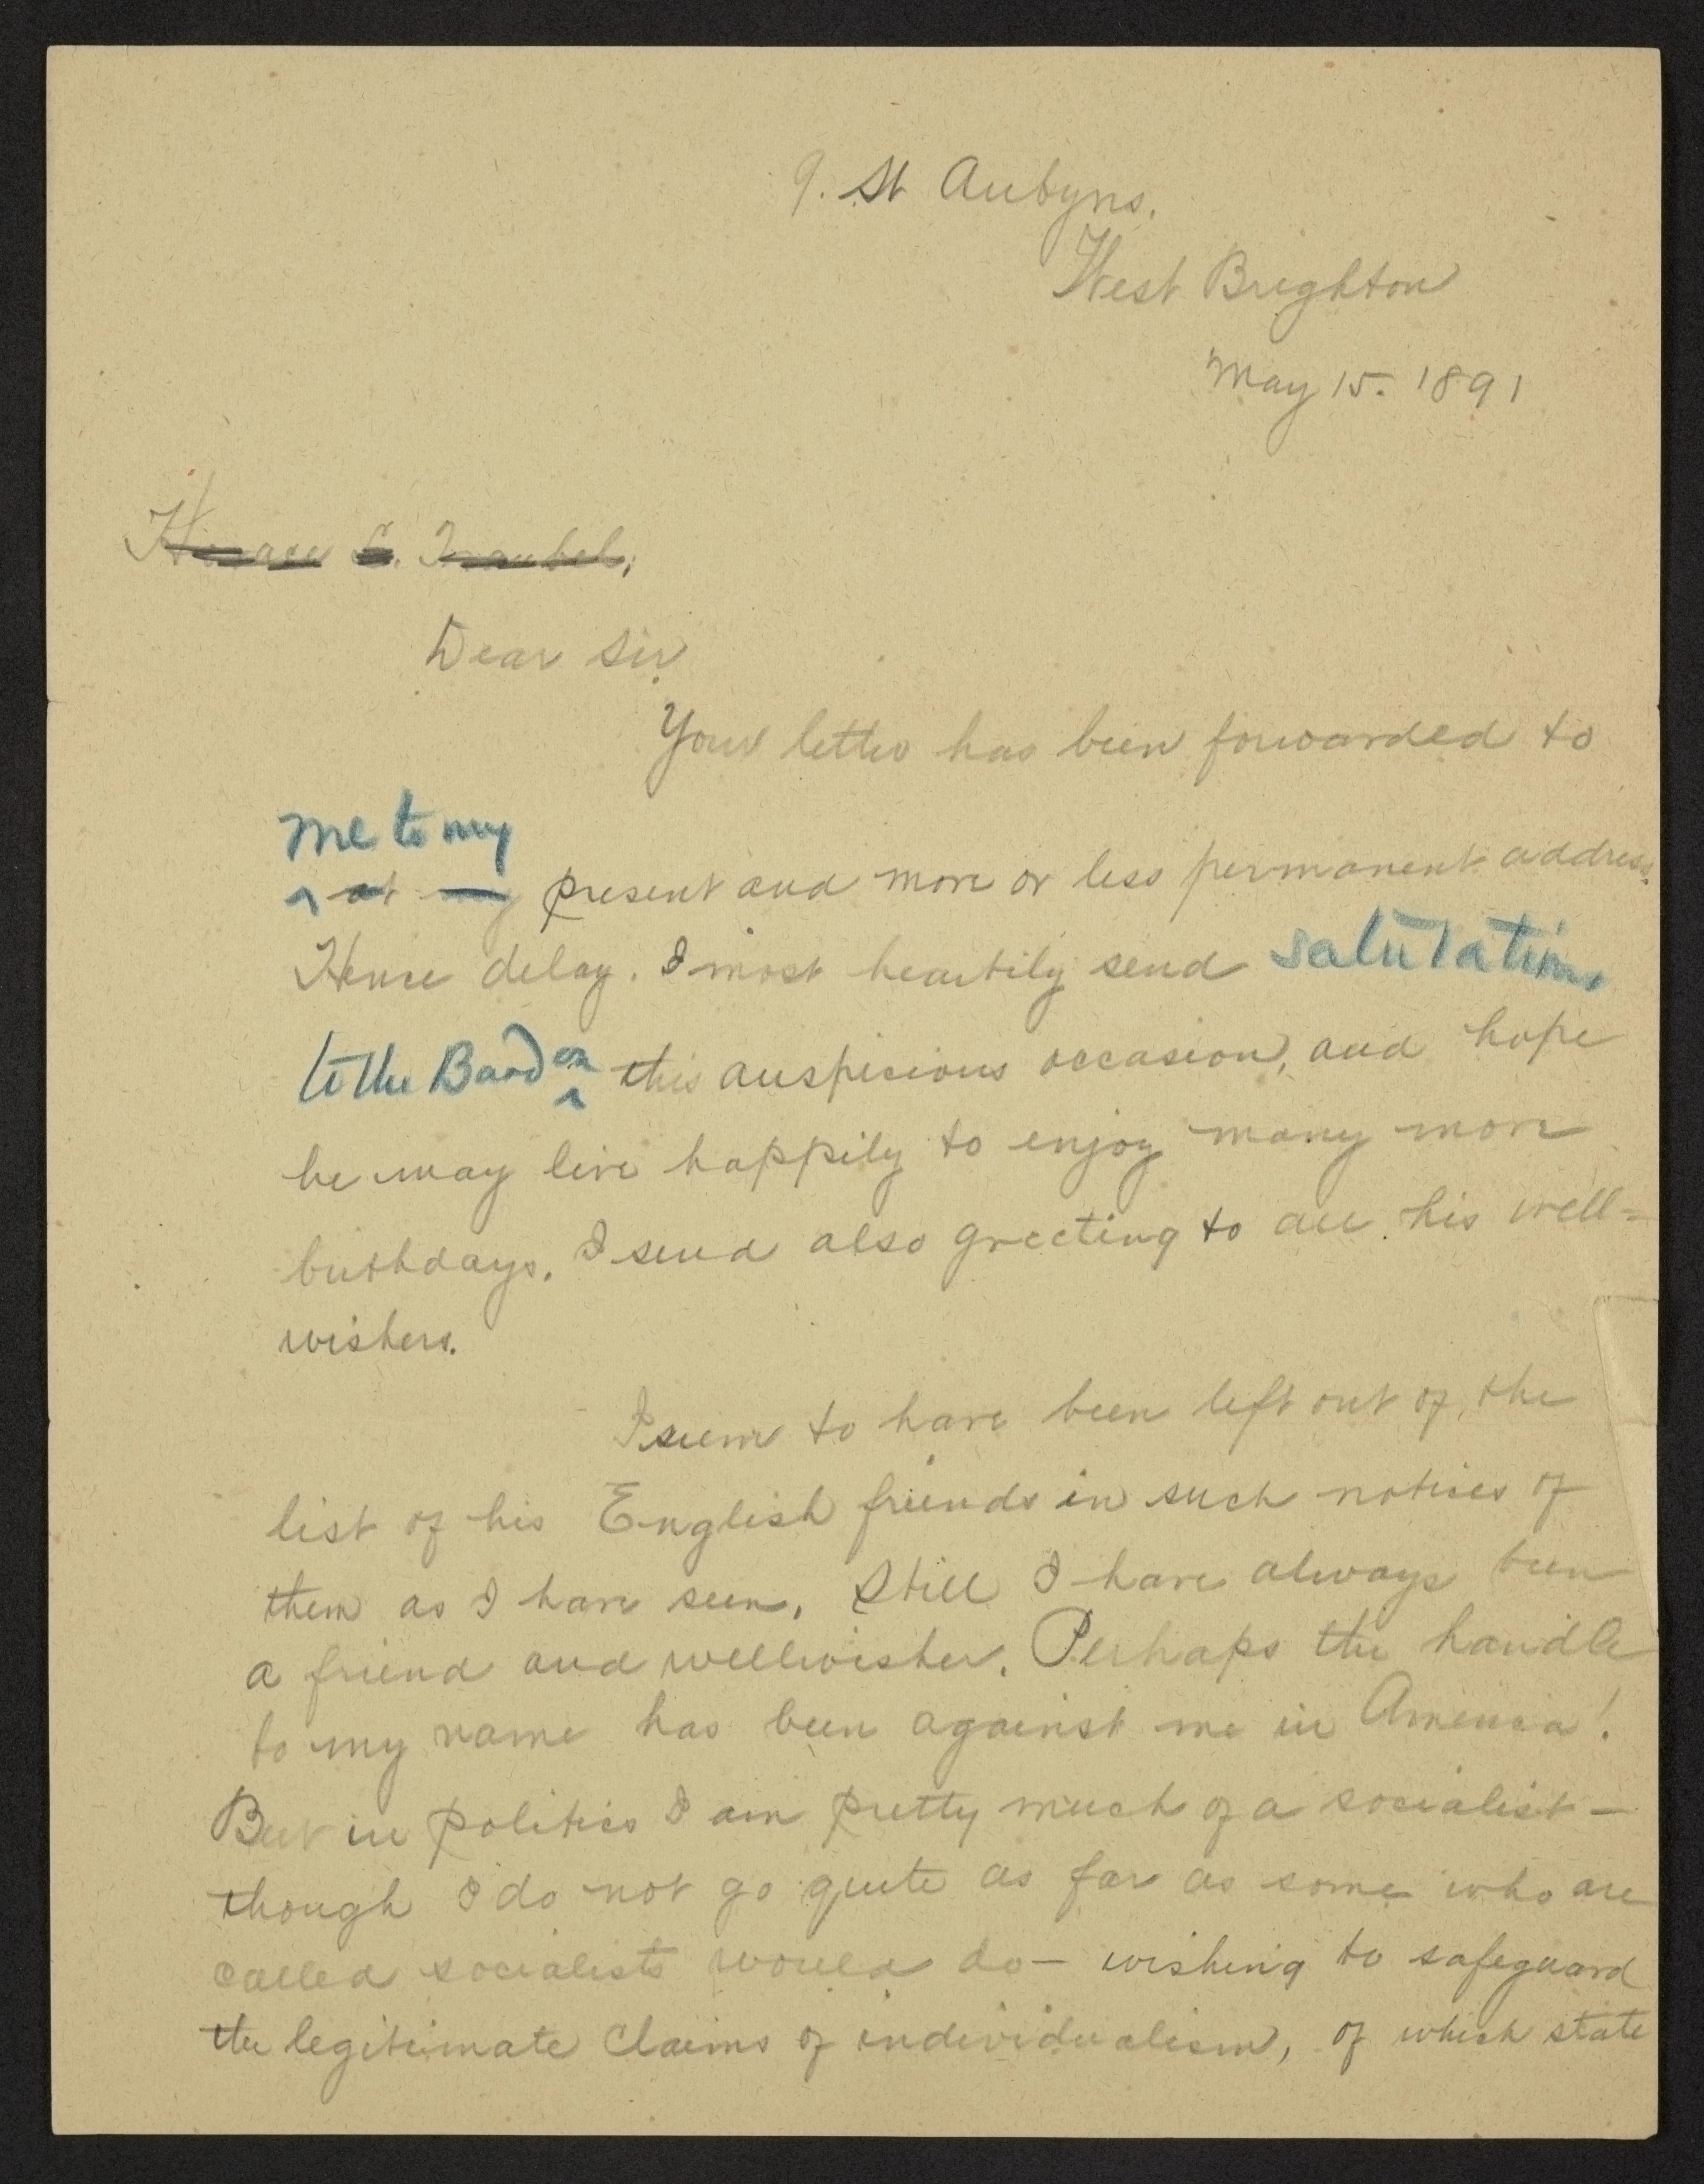 9. St Aubyns.
West Brighton
May 15. 1891
Horace L. Traubel,
Dear Sir
Your letter has been forwarded to
me to my
at my present and more or less permanent address.
Hence delay. I most heartily send salutations
to the Bard on this auspicious occasion, and hope
he may live happily to enjoy many more
birthdays. I send also greeting to all his well-
wishers.
I seem to have been left out of, the
list of his English friends in such notices of
them as I have seen. Still I have always been
a friend and wellwisher. Perhaps the handle
to my name has been against me in America!
But in politics I am pretty much of a socialist—
though I do not go quite as far as some who are
called socialists would do— wishing to safeguard
the legitimate claims of individualism, of which state